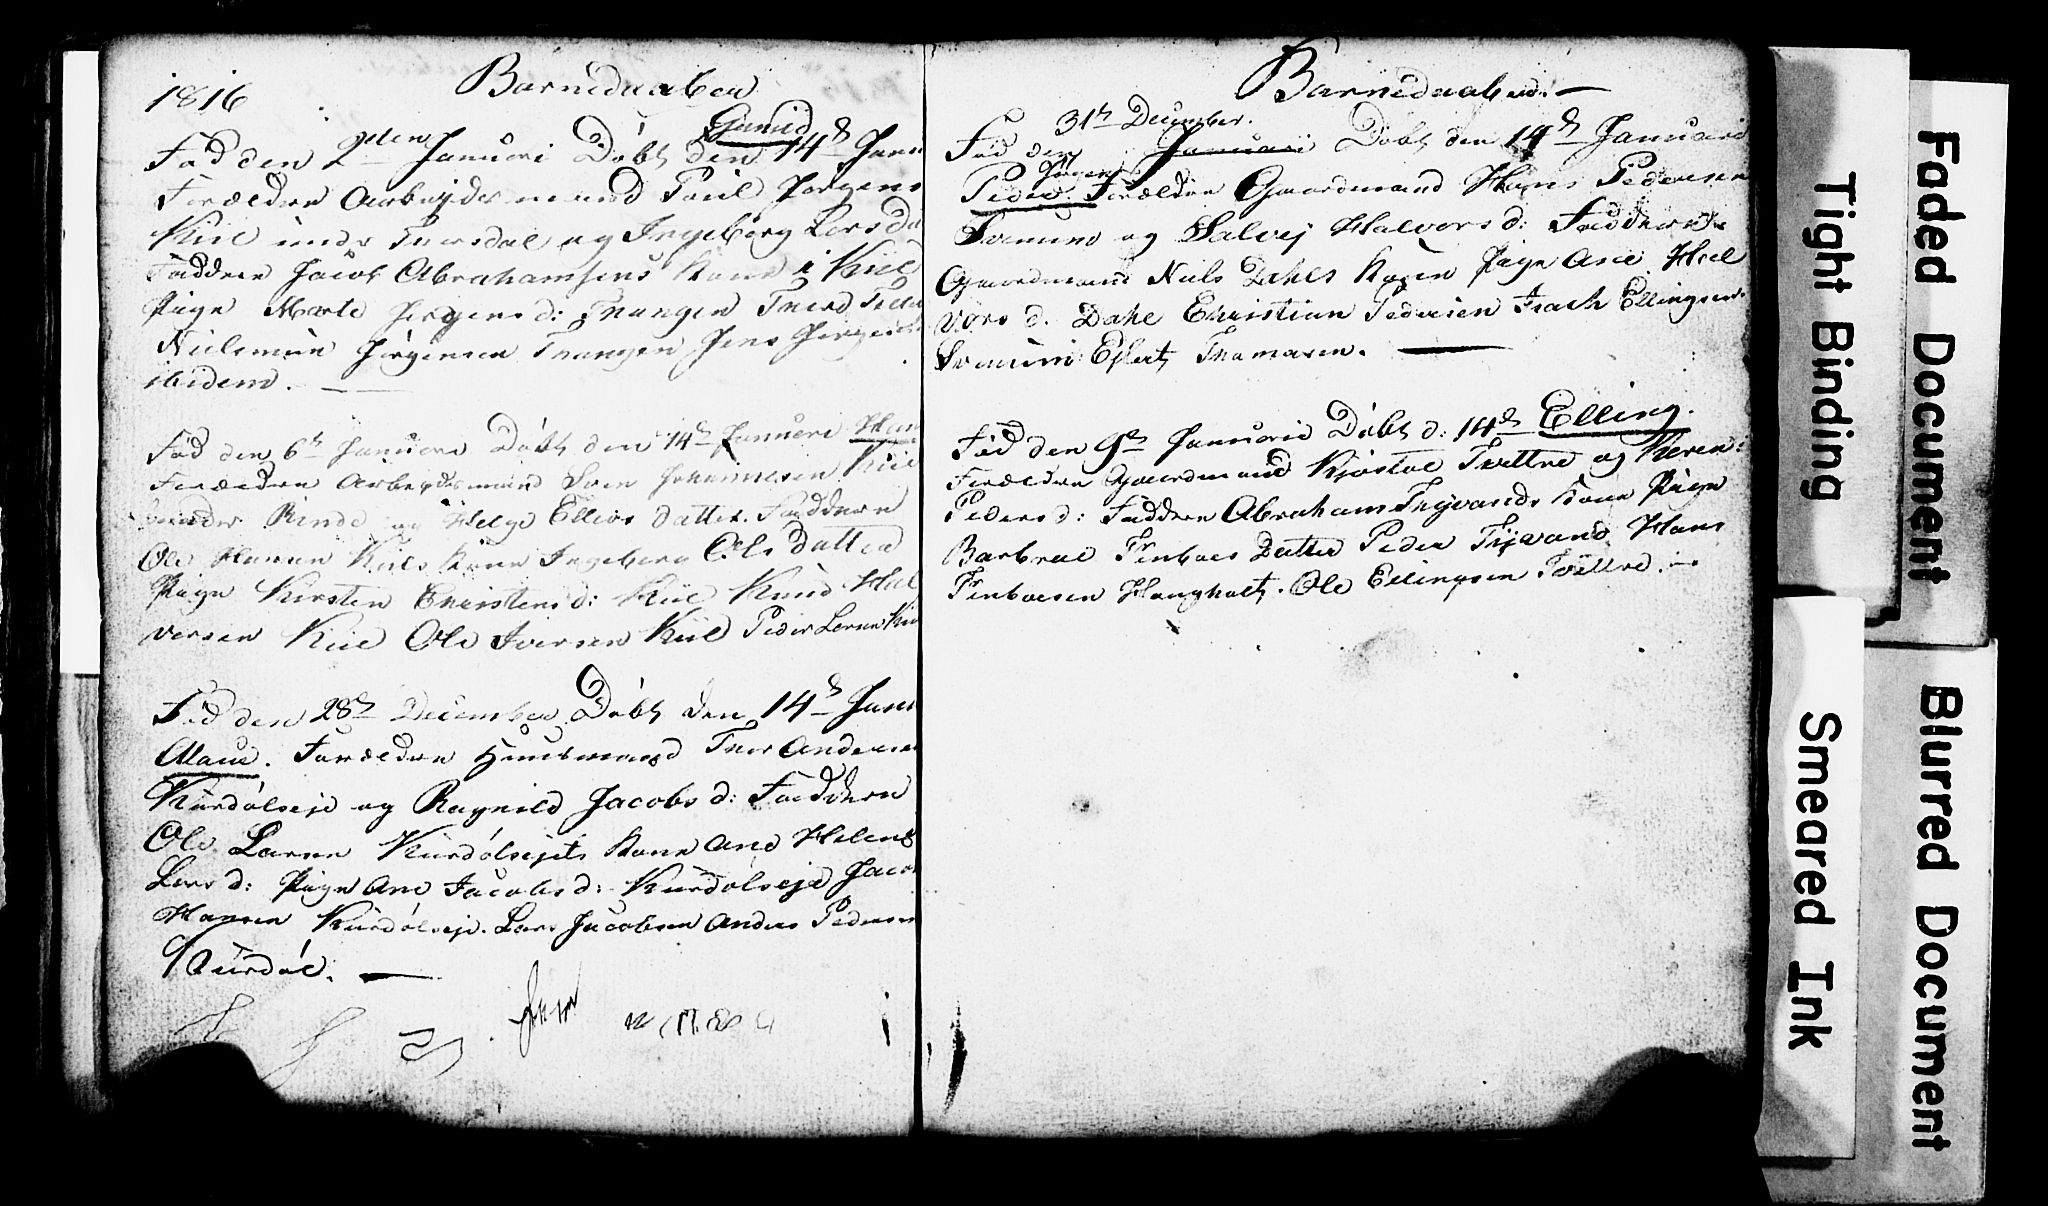 1816 Barnedaaben
Gunild
Fød den 2den Januari Døbt den 14d Janu
Forældre Arbeydesmand Poul Jørgens
Kiil under Tversdal og Ingeborg Larsda
Faddere Jacob Abrahamsens Kone i Kiil
Pige Marte Jørgens d: Trangen
Nielsen Jørgensen Trangen Jens Jørgens
ibidem.
Fød den 6th Januari Døbt den 14d Januari Han
Forældre Arbeydsmand Sven Johannesen Kiil
under Rinde og Helge Ellevs datter. Faddere
Ole Hansen Kiils Kone Ingeborg Ols datter
Pige Kirsten Christens d: Kiil Knud Hal
versen Kiil Ole Iversen Kiil Peder Larsen Kii
Fød den 28d December Døbt den 14d Janu
Maue. Forældre Huusmand Thor Anderse
Kurdølseje og Ragnild Jacobs d: Faddere
Ole Larsen Kurdølsejets Kone Ane Helene
Lars d: Pige Ane Jacobs d: Kurdølseje Jaco
Hansen Kurdølseje. Lars Jacobsen Anders Pederse
Kurdøl.
Barnedaaben.
31th December.
Fød den Januari Døbt den 14d Januari
Jørgen
Peder. Forældre Gaardmand Hans Pedersen
og Salvej Halvors d: Faddere
Gaardmand Niels Dahls Kone Pige Ane Hal
vors d. Dahl Christian Pedersen Isach Ellingsen
Eilert Thomasen.
Fød den 9de Januari Døbt d: 14d Elling.
Forældre Gaardmand Kjøstol Tvettre og Karen
Peders d: Faddere Abraham Tisvands Kone Pige
Barbroe Finboes Datter Peder Tisvand Hans
Finboesen Haugholt. Ole Ellingsen Tvettre.
Faded Document
Tight Binding
Blurred Document
Smeared Ink